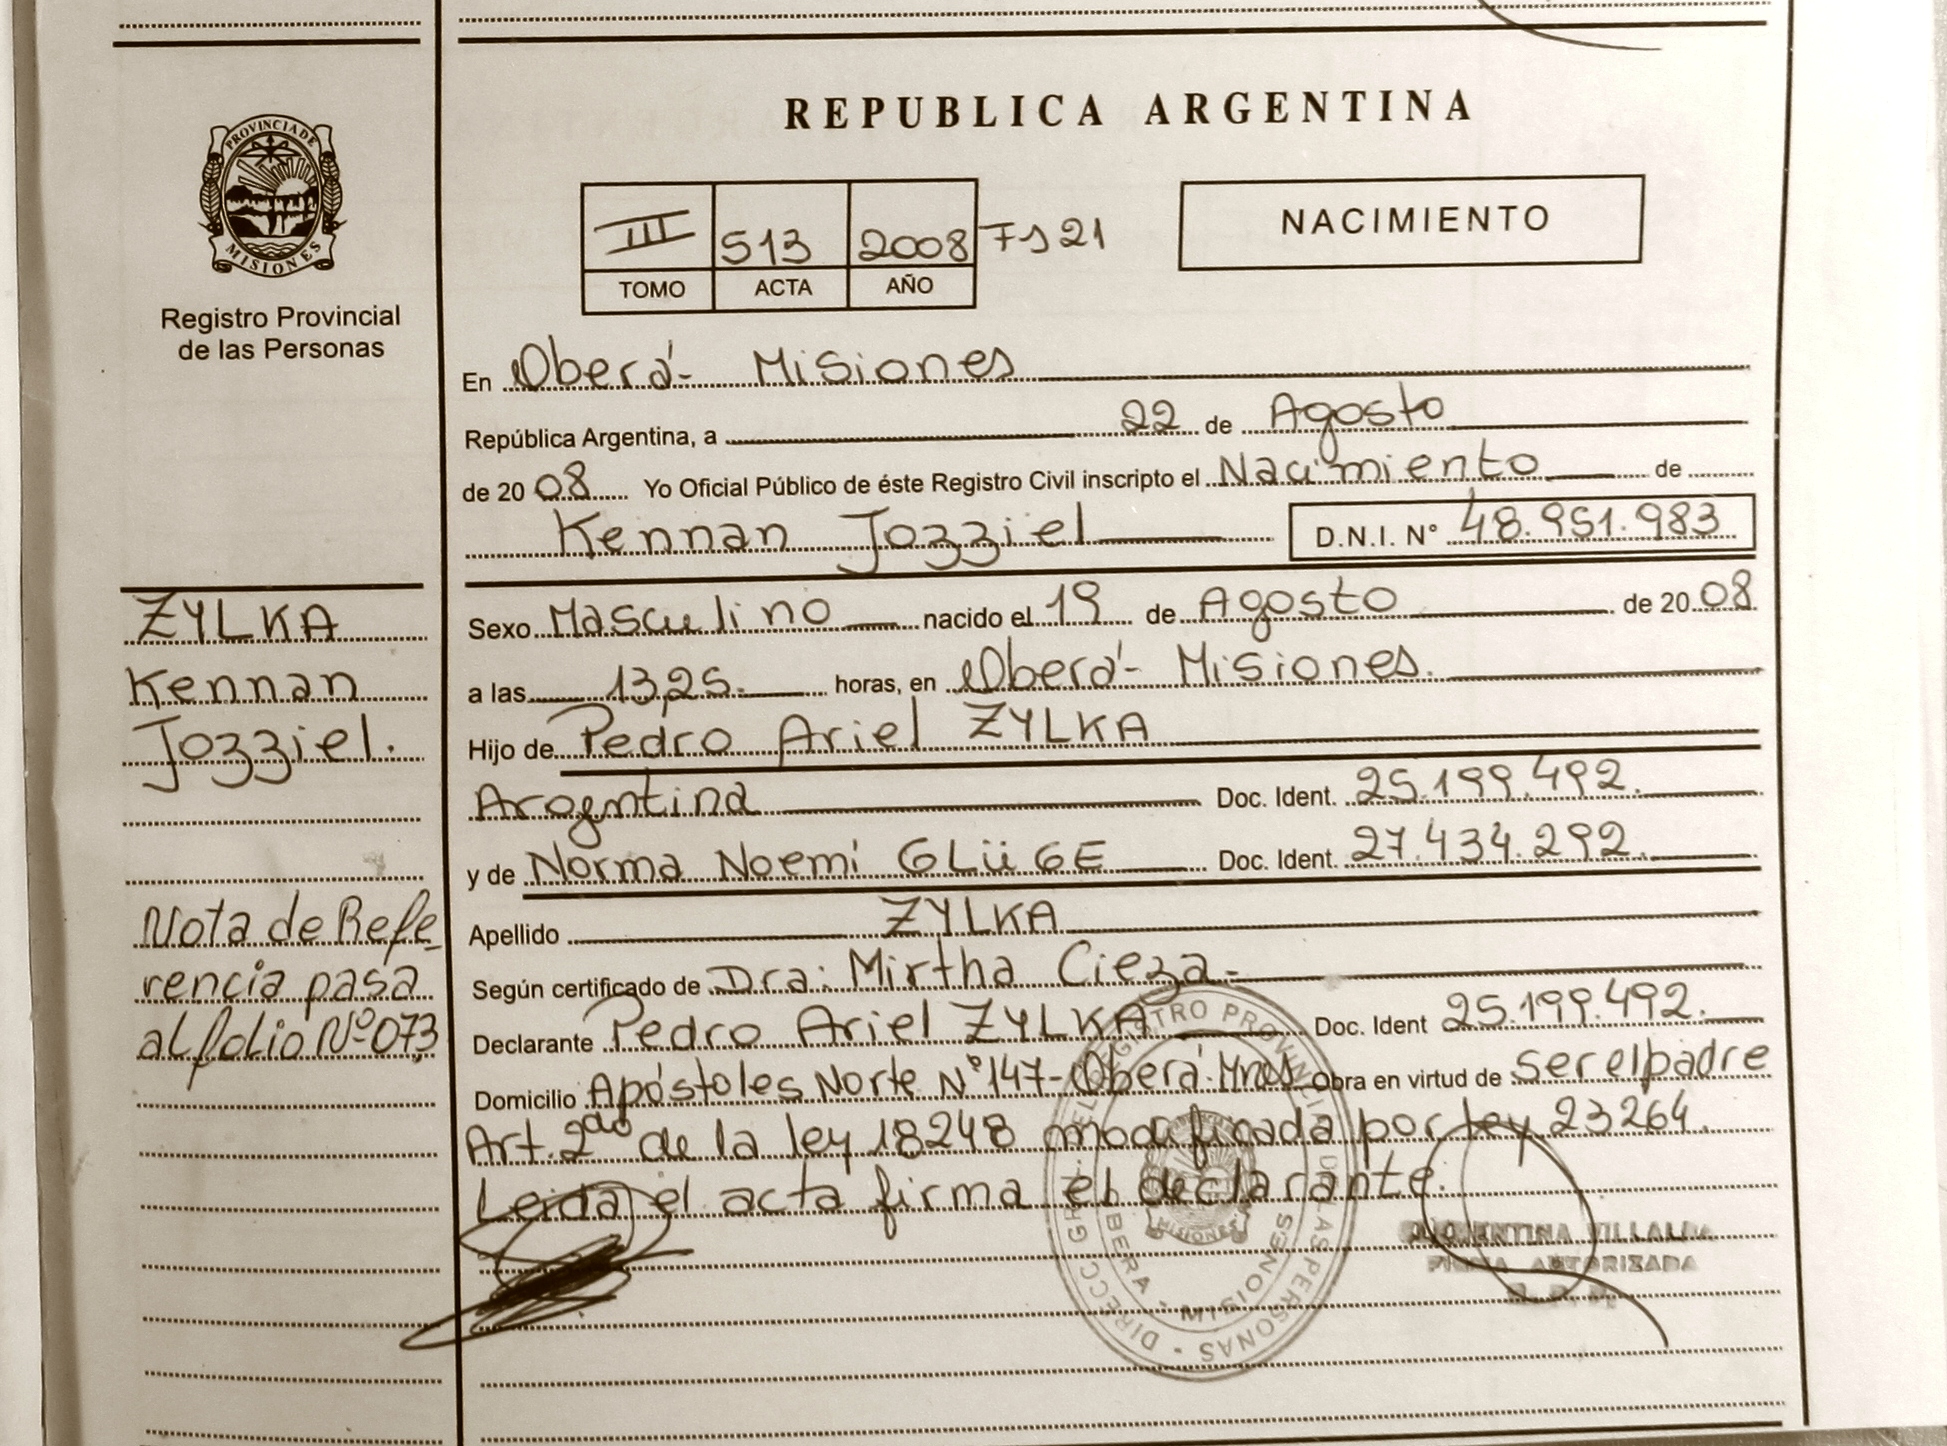 REPUBLICA ARGENTINA
PROVINCIA DE
MISIONES
Registro Provincial
de las Personas
III 513 2008 Fs 21
TOMO ACTA AÑO
NACIMIENTO
En Oberá - Misiones
República Argentina, a 22 de Agosto
de 20 08 Yo Oficial Público de éste Registro Civil inscripto el Nacimiento de
Kennan Jozziel D.N.I. N° 48.951.983
ZYLKA
Kennan
Jozziel.
Sexo Masculino nacido el 19 de Agosto de 20 08
a las 13,25. horas, en Oberá - Misiones.
Hijo de Pedro Ariel ZYLKA
Argentina Doc. Ident. 25.199.492.
y de Norma Noemí GLüGE Doc. Ident. 27.434.292.
Nota de Refe-
rencia pasa
al folio Nº 073
Apellido ZYLKA
Según certificado de Dra: Mirtha Cieza -
Declarante Pedro Ariel ZYLKA Doc. Ident 25.199.492.
Domicilio Apóstoles Norte N° 147 - Oberá - Mnes Obra en virtud de ser el padre
Art. 2do de la ley 18248 modificada por ley 23264.
Leida el acta firma el declarante.
VILLALBA
FIRMA AUTORIZADA
REGISTRO PROVINCIAL DE LAS PERSONAS
MISIONES
MISIONES